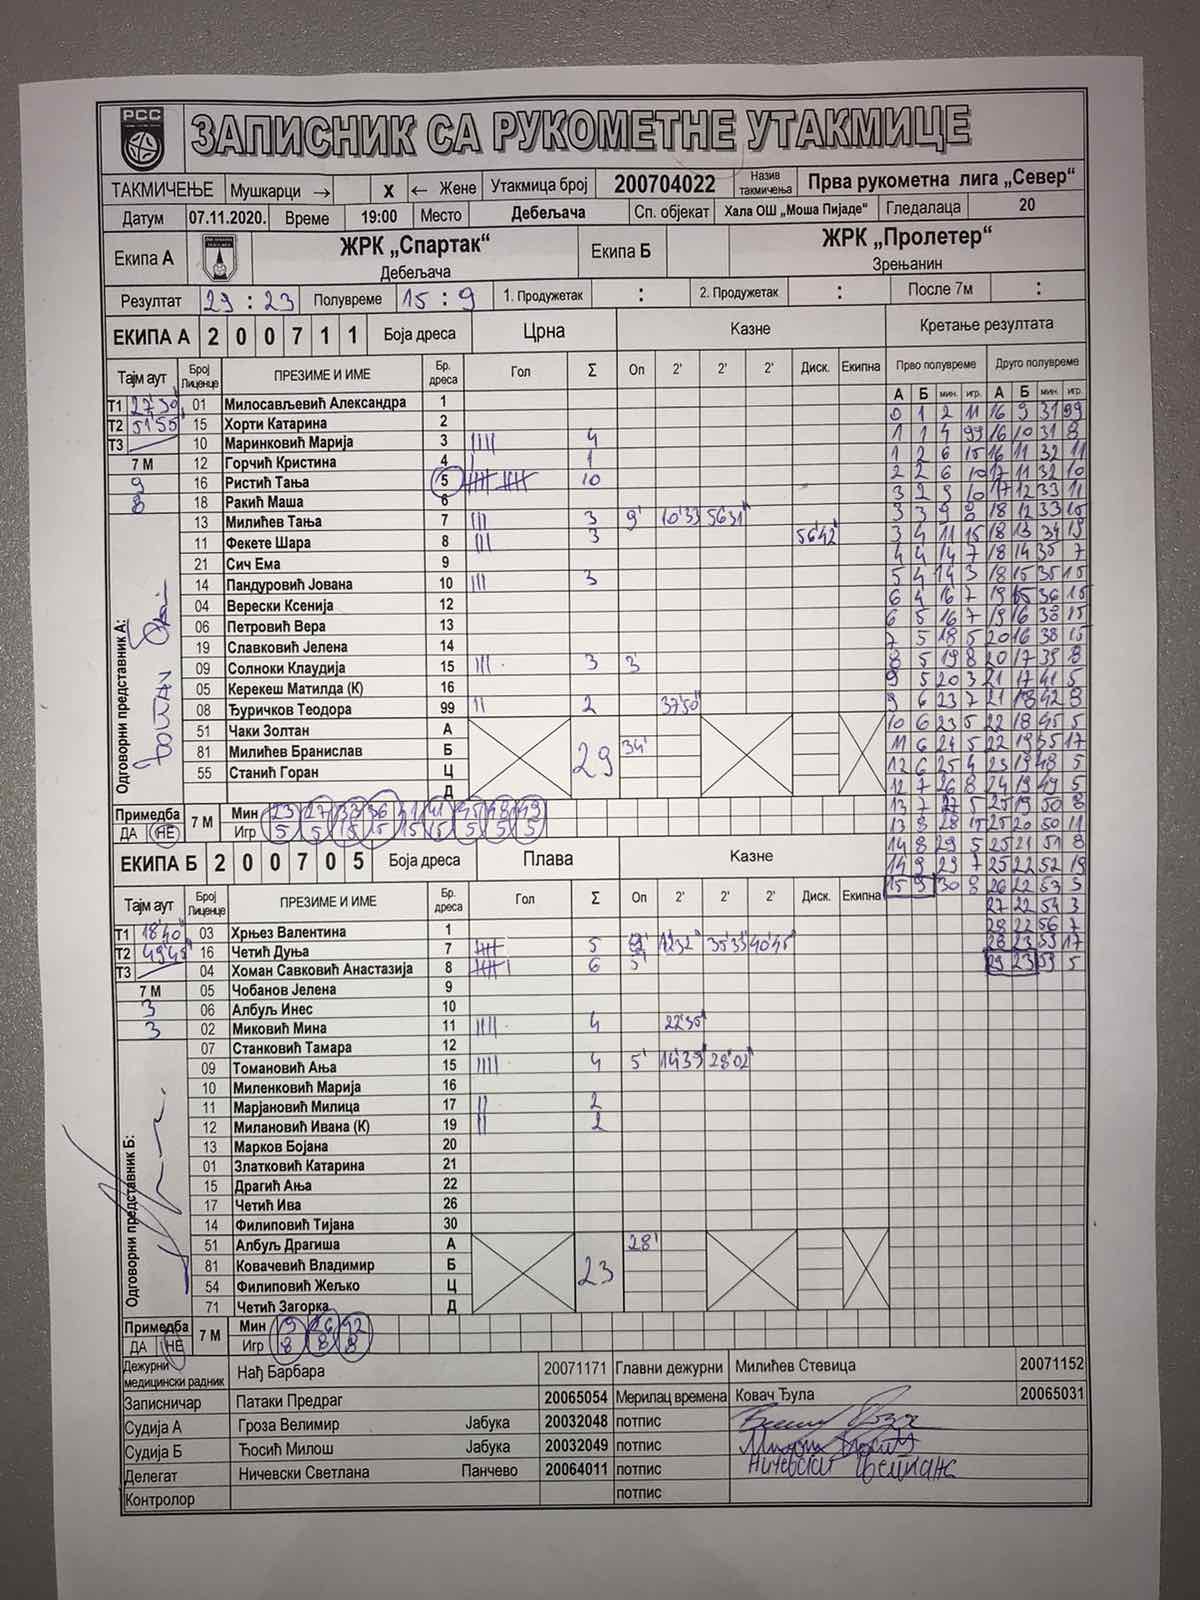 РСС
ЗАПИСНИК СА РУКОМЕТНЕ УТАКМИЦЕ
ТАКМИЧЕЊЕ Мушкарци → x ← Жене Утакмица број 200704022 Назив такмичења Прва рукометна лига „Север“
Датум 07.11.2020. Време 19:00 Место Дебељача Сп. објекат Хала ОШ „Моша Пијаде“ Гледалаца 20
Екипа А ЖРК „Спартак“ Дебељача Екипа Б ЖРК „Пролетер“ Зрењанин
Резултат 29 : 23 Полувреме 15 : 9 1. Продужетак : 2. Продужетак : После 7м :
ЕКИПА А 2 0 0 7 1 1 Боја дреса Црна Казне Кретање резултата
Тајм аут Број Лиценце ПРЕЗИМЕ И ИМЕ Бр. дреса Гол Σ Оп 2' 2' 2' Диск. Екипна Прво полувреме Друго полувреме
А Б мин. игр. А Б мин. игр.
Т1 27'30" 01 Милосављевић Александра 1
Т2 51'55" 15 Хорти Катарина 2
Т3 10 Маринковић Марија 3 |||| 4
7 М 12 Горчић Кристина 4 | 1
9 16 Ристић Тања 5 10
8 18 Ракић Маша 6
13 Милићев Тања 7 ||| 3 9' 10'33 56'31"
11 Фекете Шара 8 ||| 3 56'42"
21 Сич Ема 9
14 Пандуровић Јована 10 ||| 3
04 Верески Ксенија 12
06 Петровић Вера 13
19 Славковић Јелена 14
09 Солноки Клаудија 15 ||| 3 3'
05 Керекеш Матилда (К) 16
08 Ђуричков Теодора 99 || 2 37'50"
51 Чаки Золтан А
81 Милићев Бранислав Б 29 34'
55 Станић Горан Ц
Д
Одговорни представник А:
0 1 2 11 16 9 31 99
1 1 4 99 16 10 31 8
1 2 6 15 16 11 32 11
2 2 6 10 17 11 32 10
3 2 9 10 17 12 33 11
3 3 9 8 18 12 33 15
3 4 11 15 18 13 34 19
4 4 14 7 18 14 35 7
5 4 14 3 18 15 35 15
6 4 16 7 19 15 36 15
6 5 16 7 19 16 38 15
7 5 18 5 20 16 38 15
8 5 19 8 20 17 39 8
9 5 20 3 21 17 41 5
9 6 23 7 21 18 42 8
10 6 23 5 22 18 45 5
11 6 24 5 22 19 17
12 6 25 4 23 19 48 5
12 7 26 8 24 19 49 5
13 7 27 5 25 19 50 8
13 8 28 15 25 20 50 11
14 8 29 5 25 21 51 8
14 9 29 7 25 22 52 19
15 9 30 8 26 22 53 3
27 22 54 3
28 22 56 7
28 23 59 17
29 23 59 5
Примедба 7 М Мин 23 27 33 36 41 45 48 49
ДА НЕ Игр 5 5 15 5 15 15 5 5 5
ЕКИПА Б 2 0 0 7 0 5 Боја дреса Плава Казне
Тајм аут Број Лиценце ПРЕЗИМЕ И ИМЕ Бр. дреса Гол Σ Оп 2' 2' 2' Диск. Екипна
Т1 18'40" 03 Хрњез Валентина 1
Т2 49'45" 16 Четић Дуња 7 5 12'32" 35'33 40'45"
Т3 04 Хоман Савковић Анастазија 8 6 5'
7 М 05 Чобанов Јелена 9
3 06 Албуљ Инес 10
3 02 Миковић Мина 11 |||| 4 22'35"
07 Станковић Тамара 12
09 Томановић Ања 15 |||| 4 5' 14'39" 28'02"
10 Миленковић Марија 16
11 Марјановић Милица 17 || 2
12 Милановић Ивана (К) 19 || 2
13 Марков Бојана 20
01 Златковић Катарина 21
15 Драгић Ања 22
17 Четић Ива 26
14 Филиповић Тијана 30
51 Албуљ Драгиша А 28'
81 Ковачевић Владимир Б 23
54 Филиповић Жељко Ц
71 Четић Загорка Д
Одговорни представник Б:
Примедба 7 М Мин 9 26 42
ДА НЕ Игр 8 8 8
Дежурни медицински радник Нађ Барбара 20071171 Главни дежурни Милићев Стевица 20071152
Записничар Патаки Предраг 20065054 Мерилац времена Ковач Ђула 20065031
Судија А Гроза Велимир Јабука 20032048 потпис
Судија Б Ћосић Милош Јабука 20032049 потпис
Делегат Ничевски Светлана Панчево 20064011 потпис Ничевски Светлана
Контролор потпис